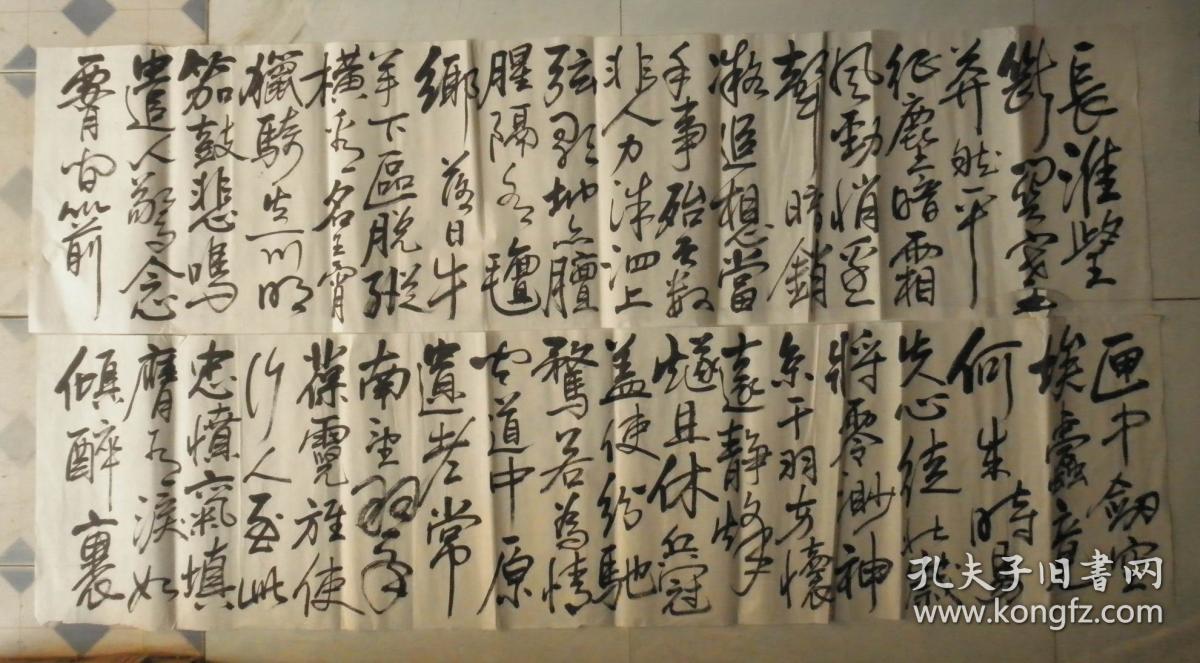 長淮望
斷關塞
莽然平
征塵暗霜
風勁悄邊
聲暗銷
凝追想當
年事殆天数
非人力洙泗上
弦歌地亦膻
腥隔水氈
鄉落日牛
羊下區脱縱
橫看名王宵
獵騎火一川明
笳鼓悲鳴
遣人驚念
腰间箭
匣中劒空
埃蠹竟
何成時易
失心徒壯歲
將零渺神
京干羽方懷
遠静烽
燧且休兵冠
盖使纷馳
騖若為情
闻道中原
遺老常
南望
葆霓旌使
行人至此
忠憤氣填
膺有淚如
傾醉裏
孔夫子旧书网
www.kongfz.com